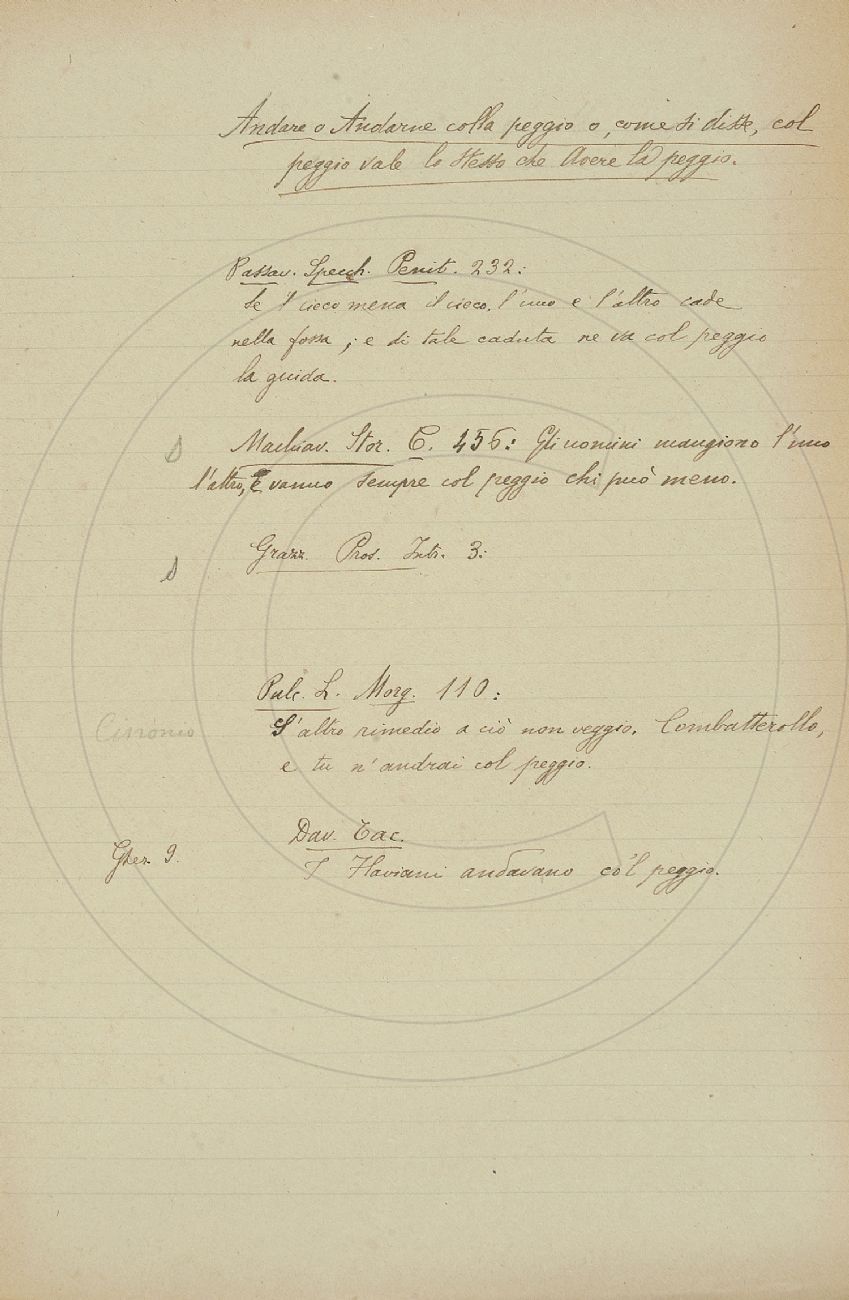 Andare o Andarne colla peggio o, come si disse, col
peggio vale lo stesso che Avere la peggio.
Passav. Specch. Penit. 232:
Se 'l cieco mena il cieco, l'uno e l'altro cade
nella fossa; e di tale caduta ne va col peggio
la guida.
Machiav. Stor. 6. 456: Gli uomini mangiono l'uno
l'altro, e vanno sempre col peggio chi può meno.
Grazz. Pros. Intr. 3:
Pulc. L. Morg. 110:
S'altro rimedio a ciò non veggio, Combatterollo,
Cinonio
e tu n'andrai col peggio.
Dav. Tac.
Gher. 9.
I Flaviani andavano co'l peggio.